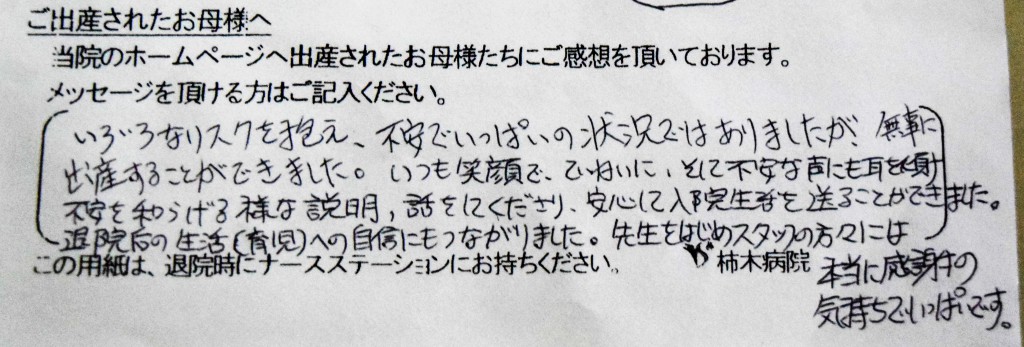 ご出産されたお母様へ
当院のホームページへ出産されたお母様たちにご感想を頂いております。
メッセージを頂ける方はご記入ください。
いろいろなリスクを抱え、不安でいっぱいの状況ではありましたが、無事に
出産することができました。いつも笑顔で、ていねいに、そして不安な声にも耳を傾け
不安を和らげる様な説明、話をしてくださり、安心して入院生活を送ることができました。
退院后の生活(育児)への自信にもつながりました。先生をはじめスタッフの方々には
この用紙は、退院時にナースステーションにお持ちください。
柿木病院
本当に感謝の
気持ちでいっぱいです。